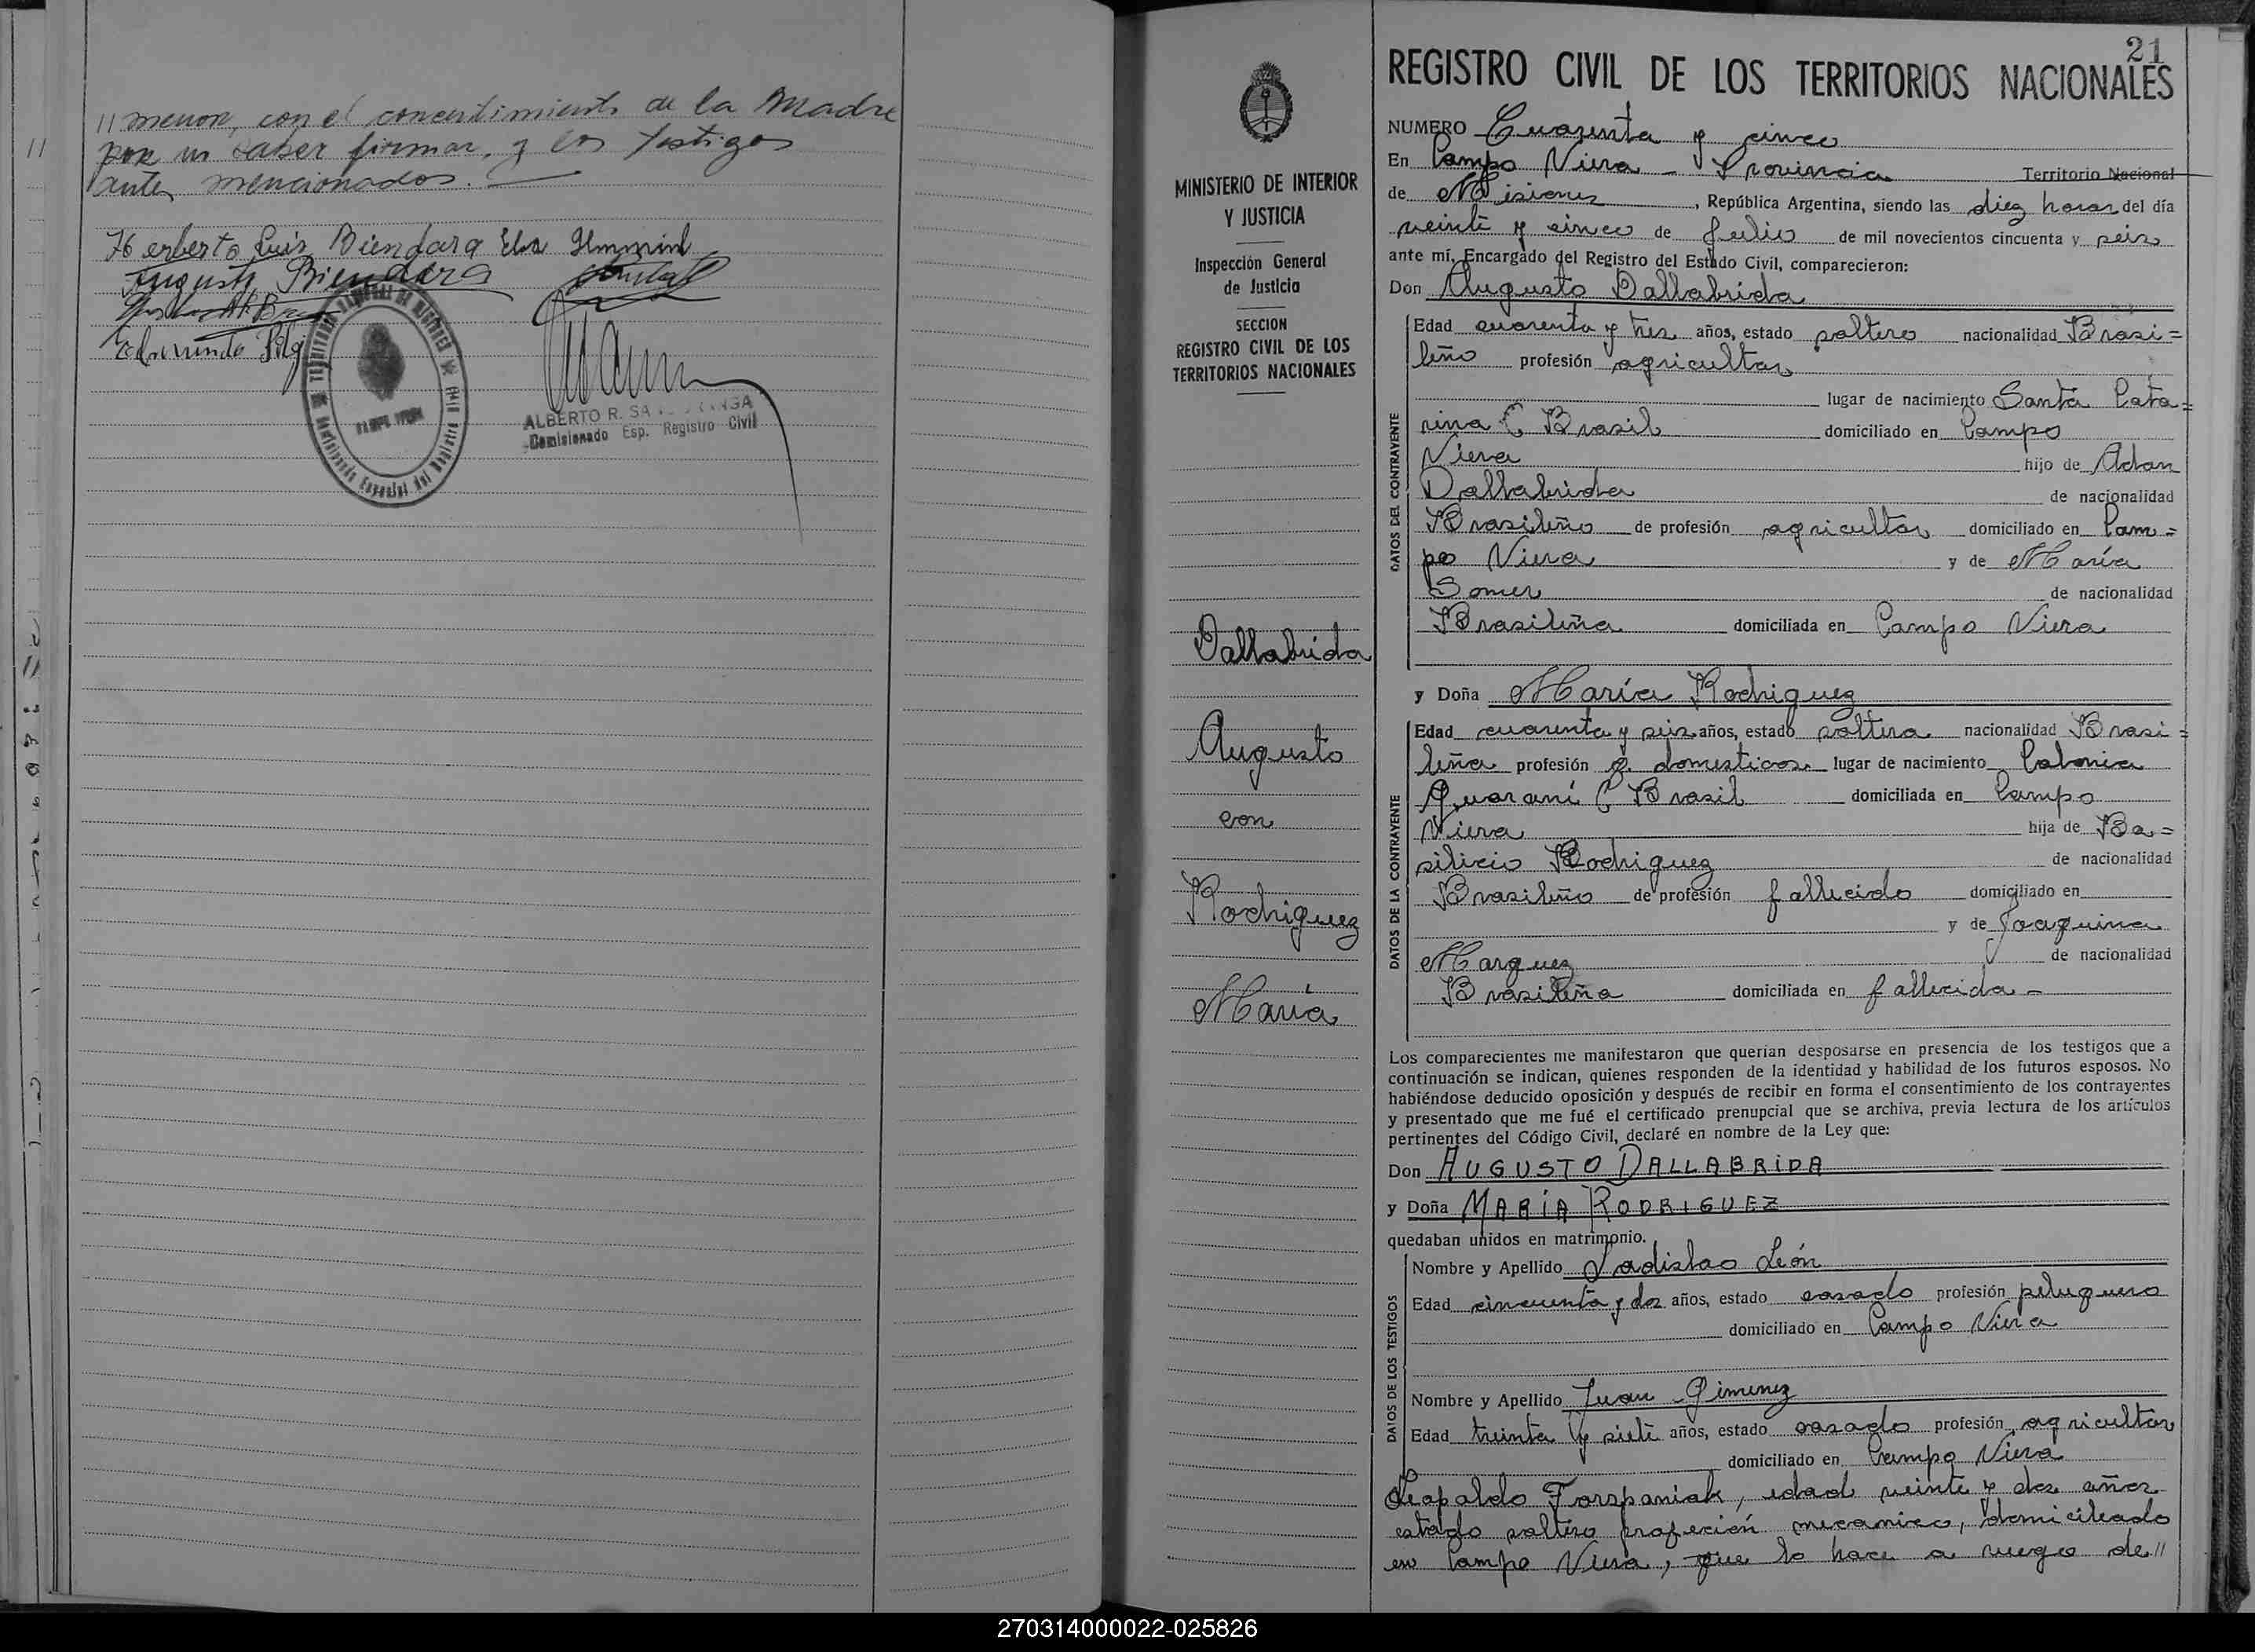 // menor, con el concentimiento de la Madre
por no saber firmar, y los testigos
antes mencionados.
Herberto Luis Biendara Elsa
Augusto Biendara
Edmundo
ALBERTO R.
Comisionado Esp. Registro Civil
//
21
REGISTRO CIVIL DE LOS TERRITORIOS NACIONALES
MINISTERIO DE INTERIOR
Y JUSTICIA
Inspección General
de Justicia
SECCION
REGISTRO CIVIL DE LOS
TERRITORIOS NACIONALES
Dallabrida
Augusto
con
Rodriguez
María
NUMERO Cuarenta y cinco
En Campo Viera - Provincia Territorio Nacional
de Misiones, República Argentina, siendo las diez horas del día
veinte y cinco de Julio de mil novecientos cincuenta y seis
ante mí, Encargado del Registro del Estado Civil, comparecieron:
Don Augusto Dallabrida
DATOS DEL CONTRAYENTE
Edad cuarenta y tres años, estado soltero nacionalidad Brasi=
leño profesión agricultor
lugar de nacimiento Santa Cata=
rina E Brasil domiciliado en Campo
Viera hijo de Adan
Dallabrida de nacionalidad
Brasileño de profesión agricultor domiciliado en Cam=
po Viera y de María
Somer de nacionalidad
Brasileña domiciliada en Campo Viera
y Doña María Rodriguez
DATOS DE LA CONTRAYENTE
Edad cuarenta y seis años, estado soltera nacionalidad Brasi=
leña profesión q. domesticos lugar de nacimiento Colonia
Guaraní E Brasil domiciliada en Campo
Viera hija de Ba=
silicio Rodriguez de nacionalidad
Brasileño de profesión fallecido domiciliado en
y de Joaquina
Marquez de nacionalidad
Brasileña domiciliada en fallecida -
Los comparecientes me manifestaron que querían desposarse en presencia de los testigos que a
continuación se indican, quienes responden de la identidad y habilidad de los futuros esposos. No
habiéndose deducido oposición y después de recibir en forma el consentimiento de los contrayentes
y presentado que me fué el certificado prenupcial que se archiva, previa lectura de los artículos
pertinentes del Código Civil, declaré en nombre de la Ley que:
Don AUGUSTO DALLABRIDA
y Doña MARÍA RODRIGUEZ
quedaban unidos en matrimonio.
DATOS DE LOS TESTIGOS
Nombre y Apellido Ladislao León
Edad cincuenta y dos años, estado casado profesión peluquero
domiciliado en Campo Viera
Nombre y Apellido Juan Gimenez
Edad treinta y siete años, estado casado profesión agricultor
domiciliado en Campo Viera
Leopaldo Forspaniak, edad veinte y dos años
estado soltero profesión mecanico, domiciliado
en Campo Viera, que lo hace a ruego de //
270314000022-025826